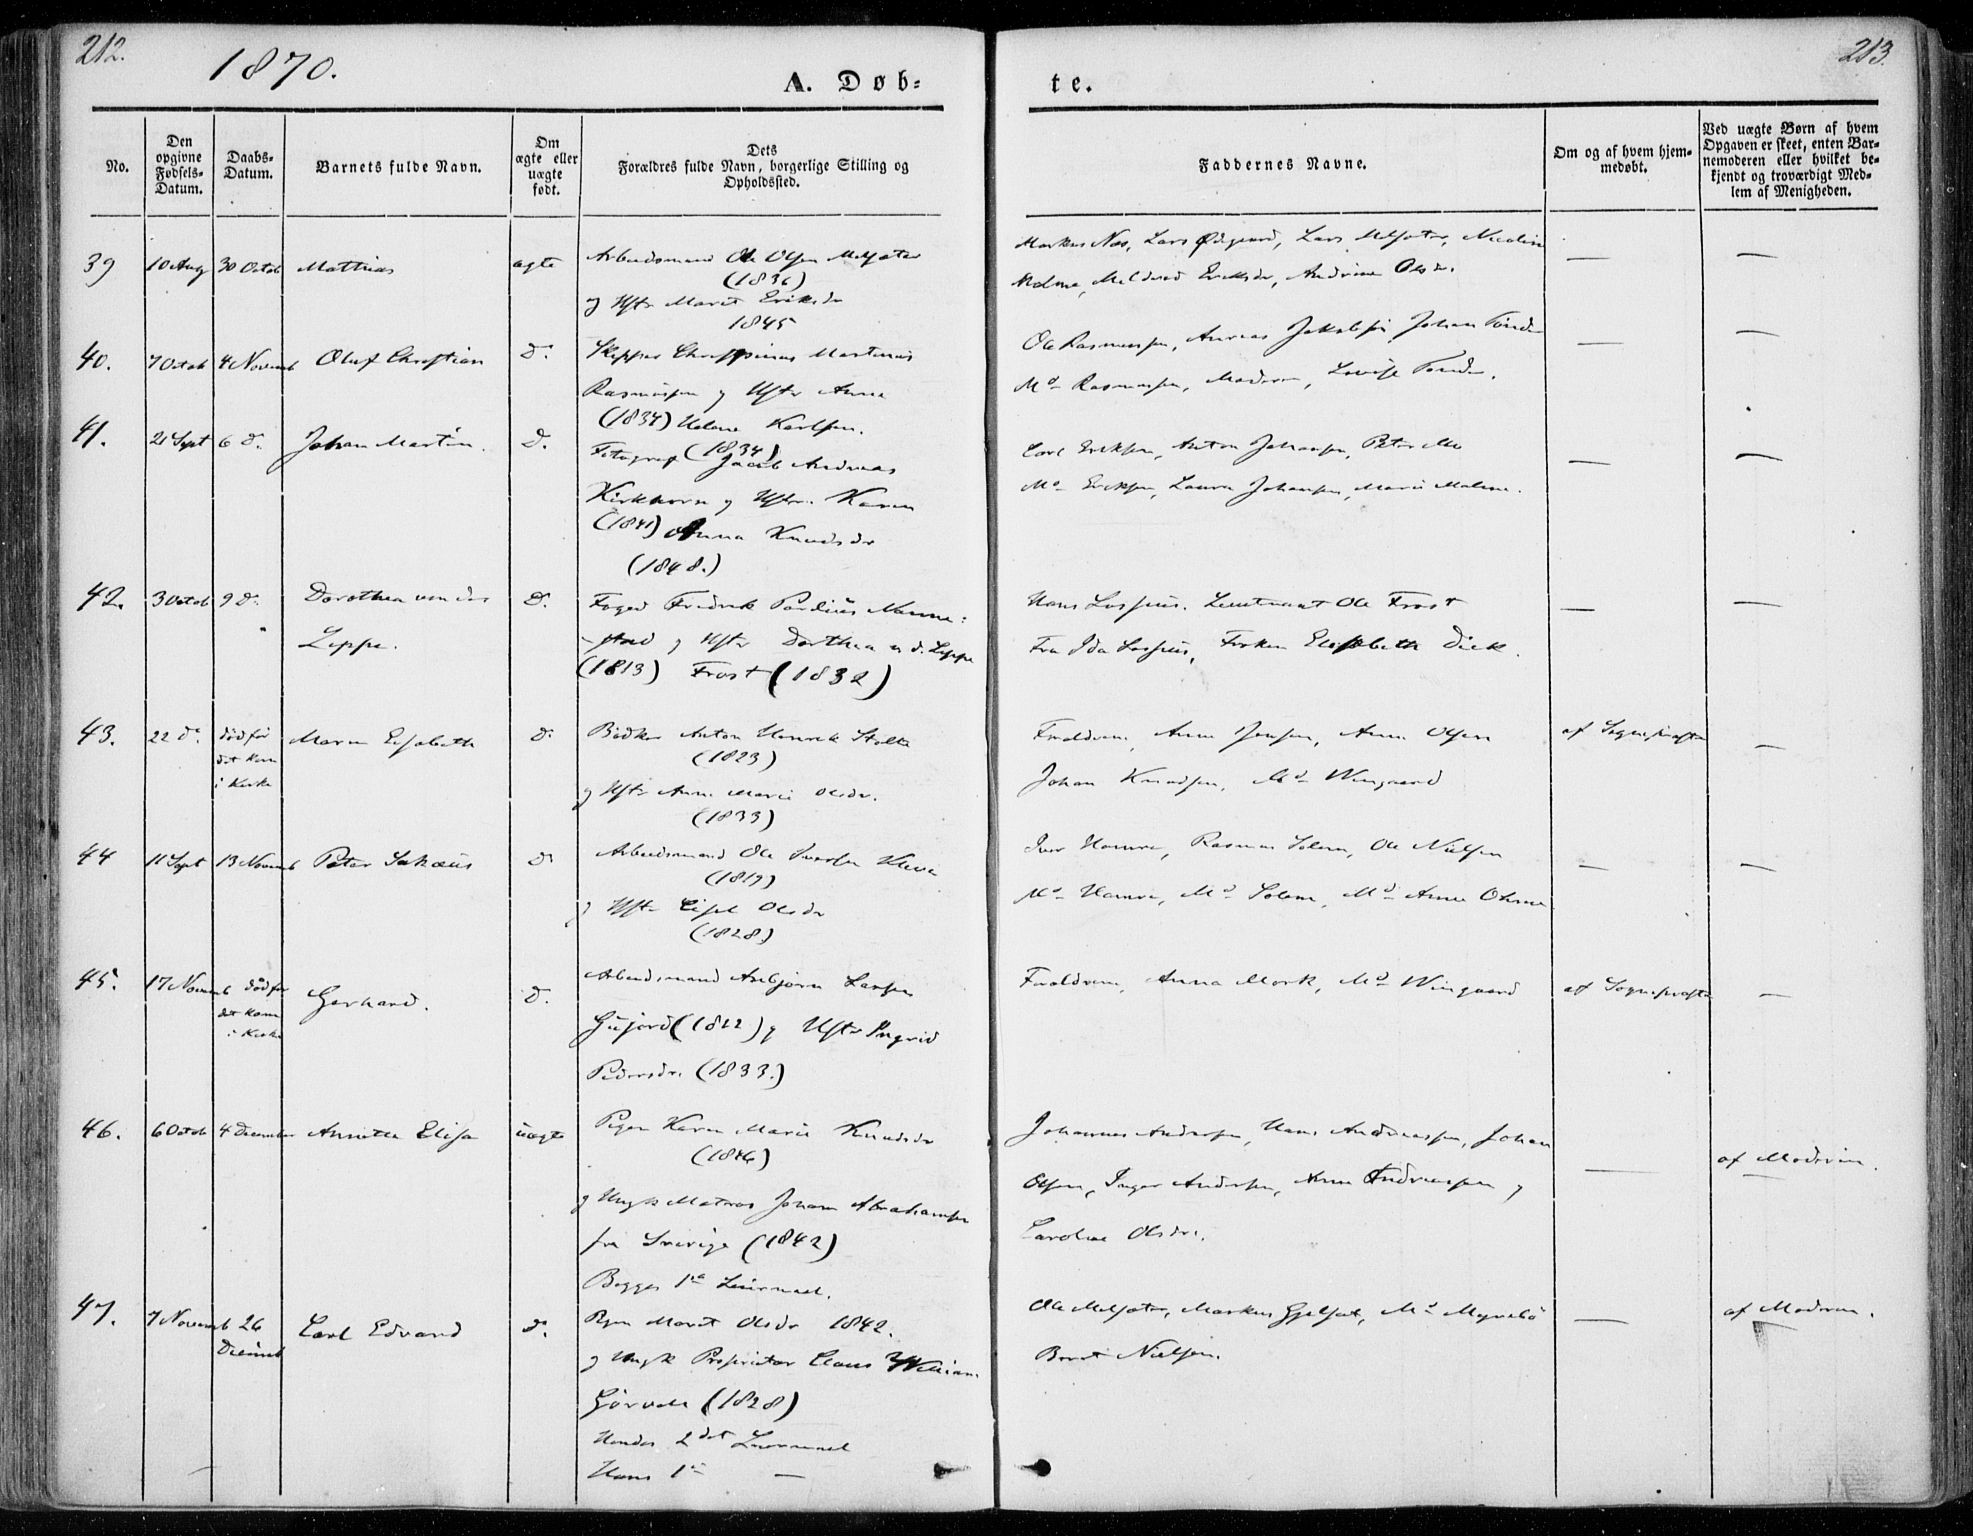 212.
1870.
A. Døb-
te.
213.
No.
Den opgivne Fødsels-Datum.
Daabs-Datum.
Barnets fulde Navn.
Om ægte eller uægte født.
Dets
Forældres fulde Navn, borgerlige Stilling og
Opholdssted.
Faddernes Navne.
Om og af hvem hjem-
medøbt.
Ved uægte Børn af hvem
Opgaven er skeet, enten Bar-
nemoderen eller hvilket be-
kjendt og troværdigt Med-
lem af Menigheden.
39 10 Aug 30 Octob Mathias ægte Arbeidsmand Ole Olsen
(1836)
og Hstr Marit Eriksdr
1845
Markus Næs, Lars Ødegaard, Lars
Eriksdr, Andrine Olsdr.
—
—
40. 7 Octob 4 Novemb Oluf Christian D.
Skipper Martinus
Rasmusen og Hstr Anna
(1834) Karlsen.
(1834)
Ole Rasmussen, Johan
Md Rasmussen, Moderen, Lovise
—
—
41. 21 Sept 6 d. Johan Martin. D.
Fotograf Jacob Andreas
Kirkhorn og Hstr. Karen
(1841) Anna Knudsdr
(1848.)
Carl Eriksen, Anton Johansen, Peter Mo
Md Eriksen, Laura Johansen, Marie Malene.
—
—
42. 3 Octob 9 D. Dorothea von der
Lippe.
D.
Foged Fredrik
og Hstr Dorthea v. d. Lippe
(1813) Frost (1832)
Hans Lossius. Lieutenant Ole Frost
Fru Ida Lossius, Frøken Elisabeth Dick.
—
—
43. 22 d. død før
det kom
i Kirke
Maren Elisabeth
D.
Bødker Anton Henrik Stolte
(1823)
og Hstr Anne Marie Olsdr.
(1833)
Forældrene, Anne Jensen, Anne Olsen
Johan Knudsen, Md Wingaard
af Sognepræsten
—
44 11 Sept 13 Novemb Peter D
Arbeidsmand Ole
(1819)
og Hstr Olsdr
(1828.)
Iver Hamre, Rasmus Solem, Ole Nielsen
Md Hamre, Md Solem, Md Anne
—
—
45. 17 Novemb død før
det kom
i Kirke
Gerhard.
D.
Arbeidsmand Asbjørn Larsen
(1822) og Hstr Ingrid
Pedersdr. (1833.)
Forældrene, Anna Mork, Md Wingaard
af Sognepræsten
—
46. 6 Octob 4 December Annette Elisa uægte
Pigen Karen Marie Knudsdr
(1846)
og Ungk Matros Johan Abrahamsen
fra Sverige (1842)
Begges 1ste Leiermaal.
Johannes Andersen, Hans Andreassen, Johan
Olsen, Inger Andersen, Anne Andreassen og
Caroline Olsdr.
—
af Moderen.
47. 7 Novemb 26
Decemb
Carl Edvard
D.
Pigen Marit Olsdr 1842.
og Ungk Proprietær Claus William
(1828)
Hendes 2det Leiermaal
Hans 1ste —
Ole Markus Md Myrebø
Berit Nielsen.
—
af Moderen.